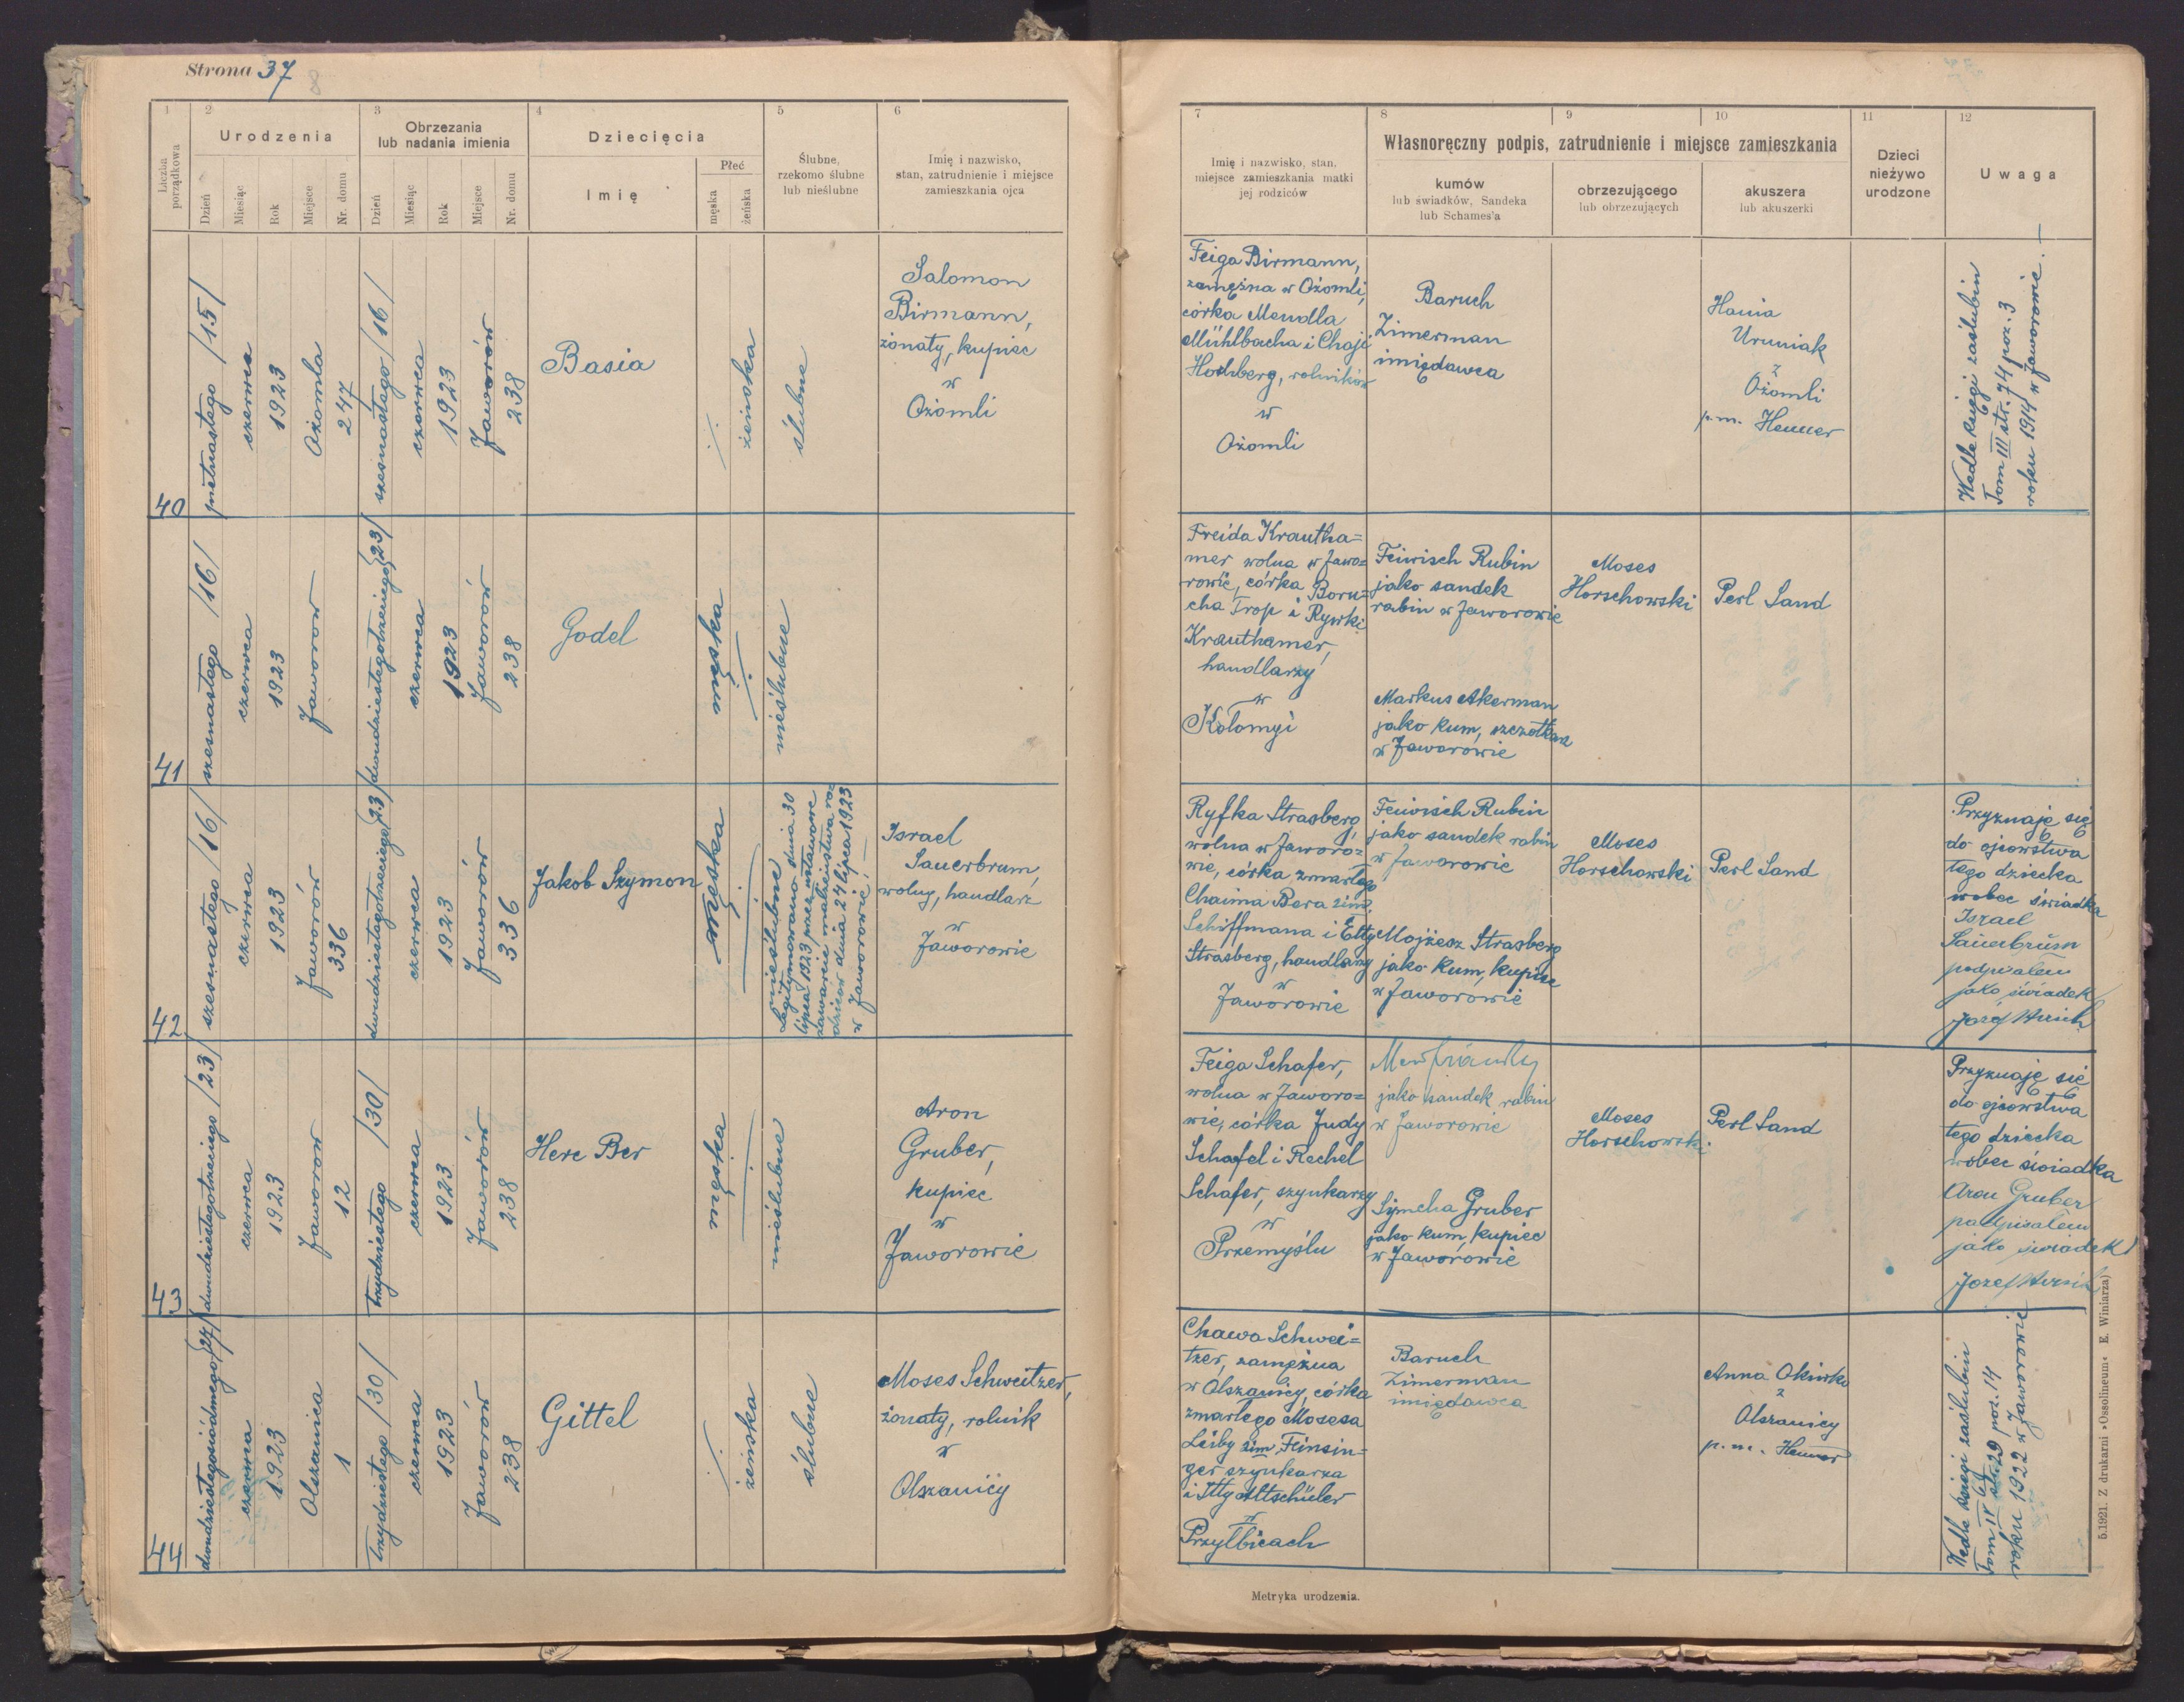 Strona 37
1
2
3
4
5
6
Liczba porządkowa
Urodzenia
Obrzezania
lub nadania imienia
Dziecięcia
Ślubne,
rzekomo ślubne
lub nieślubne
Imię i nazwisko,
stan, zatrudnienie i miejsce
zamieszkania ojca
Dzień
Miesiąc
Rok
Miejsce
Nr. domu
Dzień
Miesiąc
Rok
Miejsce
Nr. domu
Imię
Płeć
męska
żeńska
40
piętnastego /15/
czerwca
1923
Ożomla
247
szesnastego /16/
czerwca
1923
Jaworów
238
Basia
żeńska
ślubne
Salomon
Birmann,
żonaty, kupiec
w
Ożomli
41
szesnastego /16/
czerwca
1923
Jaworow
dwudziestegotrzeciego /23/
czerwca
1923
Jaworów
238
Godel
męska
nieślubne
42
szesnastego /16/
czerwca
1923
Jaworów
336
dwudziestegotrzeciego /23/
czerwca
1923
Jaworów
336
Jakob Szymon
męska
nieślubne
Legitymowano dnia 30
lipca 1923 przez ustawowe
zawarcie małżeństwa ro=
dziców dnia 24 lipca 1923
w Jaworowie, —
Israel
Sauerbrum,
wolny, handlarz
w
Jaworowie
43
dwudziestegotrzeciego /23/
czerwca
1923
Jaworow
12
trzydziestego /30/
czerwca
1923
Jaworów
238
Herc Ber
męska
nieślubne
Aron
Gruber,
kupiec
w
Jaworowie
44
dwudziestegosiódmego /27/
czerwca
1923
Olszanica
1
trzydziestego /30/
czerwca
1923
Jaworów
238
Gittel
żeńska
ślubne
Moses Schweitzer,
żonaty, rolnik
w
Olszanicy
7
8
9
10
11
12
Imię i nazwisko, stan,
miejsce zamieszkania matki
jej rodziców
Własnoręczny podpis, zatrudnienie i miejsce zamieszkania
kumów
lub świadków, Sandeka
lub Schames'a
obrzezującego
lub obrzezujących
akuszera
lub akuszerki
Dzieci
nieżywo
urodzone
Uwaga
Feiga Birmann,
zamężna w Ożomli,
córka Mendla
Mühlbacha i Chaji
Hochberg, rolników
w
Ożomli
Baruch
Zimerman
imiędawca
Hania
Uruniak
z
Ożomli
p.m. Hemmer
Wedle księgi zaślubin
Tom III str. 74 poz. 3
roku 1914 w Jaworowie. —
Freida Krautha=
mer wolna w Jawo=
rowie, córka Boru=
cha Trop i Rywki
Krauthamer,
handlarzy
w
Kołomyi
Feiwisch Rubin
jako sandek
rabin w Jaworowie
Markus Akerman
jako kum, szczotkarz
w Jaworowie
Moses
Horschowski
Perl Sand
Ryfka Strasberg,
wolna w Jaworo=
wie, córka zmarłego
Chaima Bera 2im.
Schiffmana i Etty
Strasberg, handlarzy
w
Jaworowie
Feiwisch Rubin
jako sandek rabin
w Jaworowie
Mojżesz Strasberg
jako kum, kupiec
w Jaworowie
Moses
Horschowski
Perl Sand
Przyznaję się
do ojcowstwa
tego dziecka
wobec świadka
Israel
Sauerbrum
podpisałem
jako świadek
Jozef
Feiga Schafer,
wolna w Jaworo=
wie, córka Judy
Schafel i Rechel
Schafer, szynkarzy
w
Przemyślu
jako sandek rabin
w Jaworowie
Symcha Gruber
jako kum, kupiec
w Jaworowie
Moses
Horschowski
Perl Sand
Przyznaję się
do ojcowstwa
tego dziecka
wobec świadka
Aron Gruber
podpisałem
jako świadek
Jozef
Chawa Schwei=
tzer, zamężna
w Olszanicy, córka
zmarłego Mosesa
Leiby 2im. Feinsin=
ger szynkarza
i Itty Altschüler
w
Przyłbicach
Baruch
Zimerman
imiędawca
Anna Okiwko
z
Olszanicy
p.m. Hemmer
Wedle księgi zaślubin
Tom IV str. 29 poz. 14
roku 1922 w Jaworowie
Metryka urodzenia.
5.1921. Z drukarni »Ossolineum« E. Winiarza)